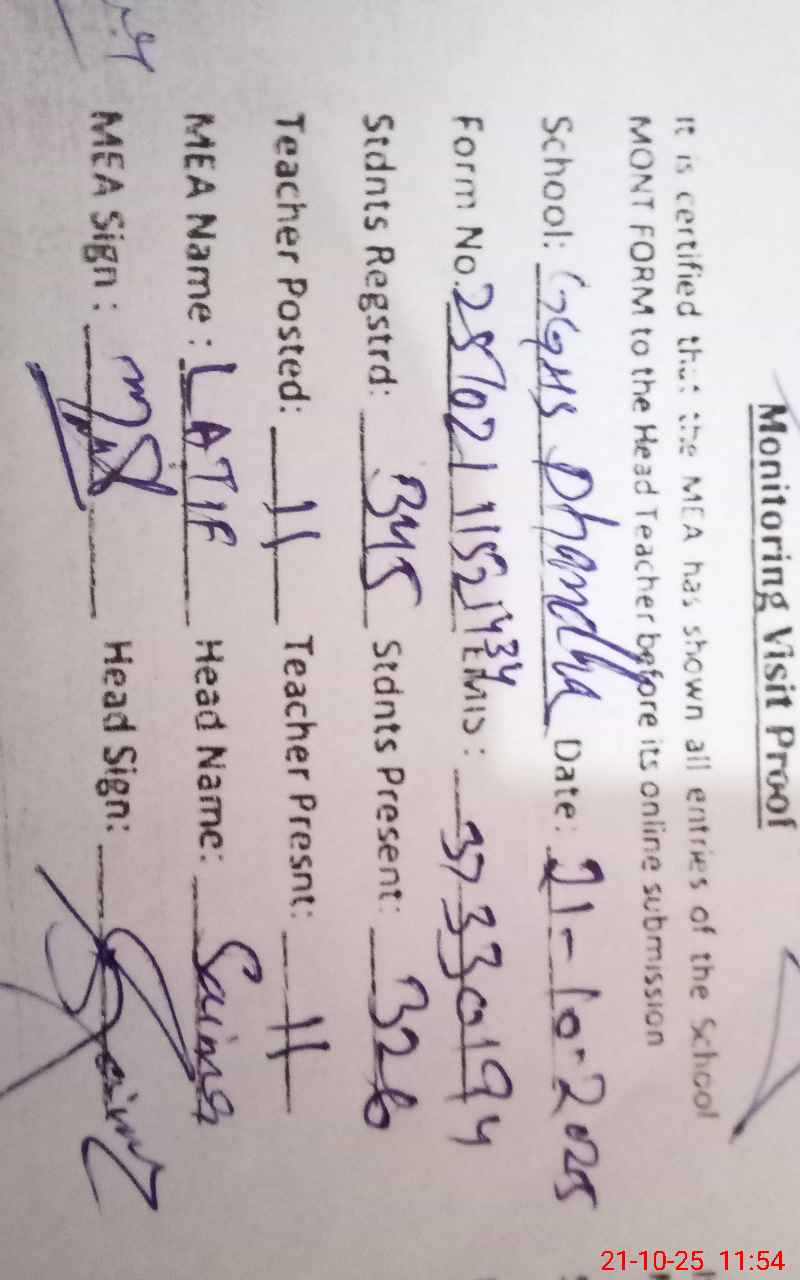 Monitoring Visit Proof
It is certified that the MEA has shown all entries of the School
MONT FORM to the Head Teacher before its online submission
School: GGHS Dhandha Date: 21-10-2025
Form No. EMIS: 37330194
Stdnts Regstrd: 345 Stdnts Present: 326
Teacher Posted: 11 Teacher Presnt: 11
MEA Name: LATIF Head Name: Saima
MEA Sign: Head Sign: Saima
21-10-25 11:54